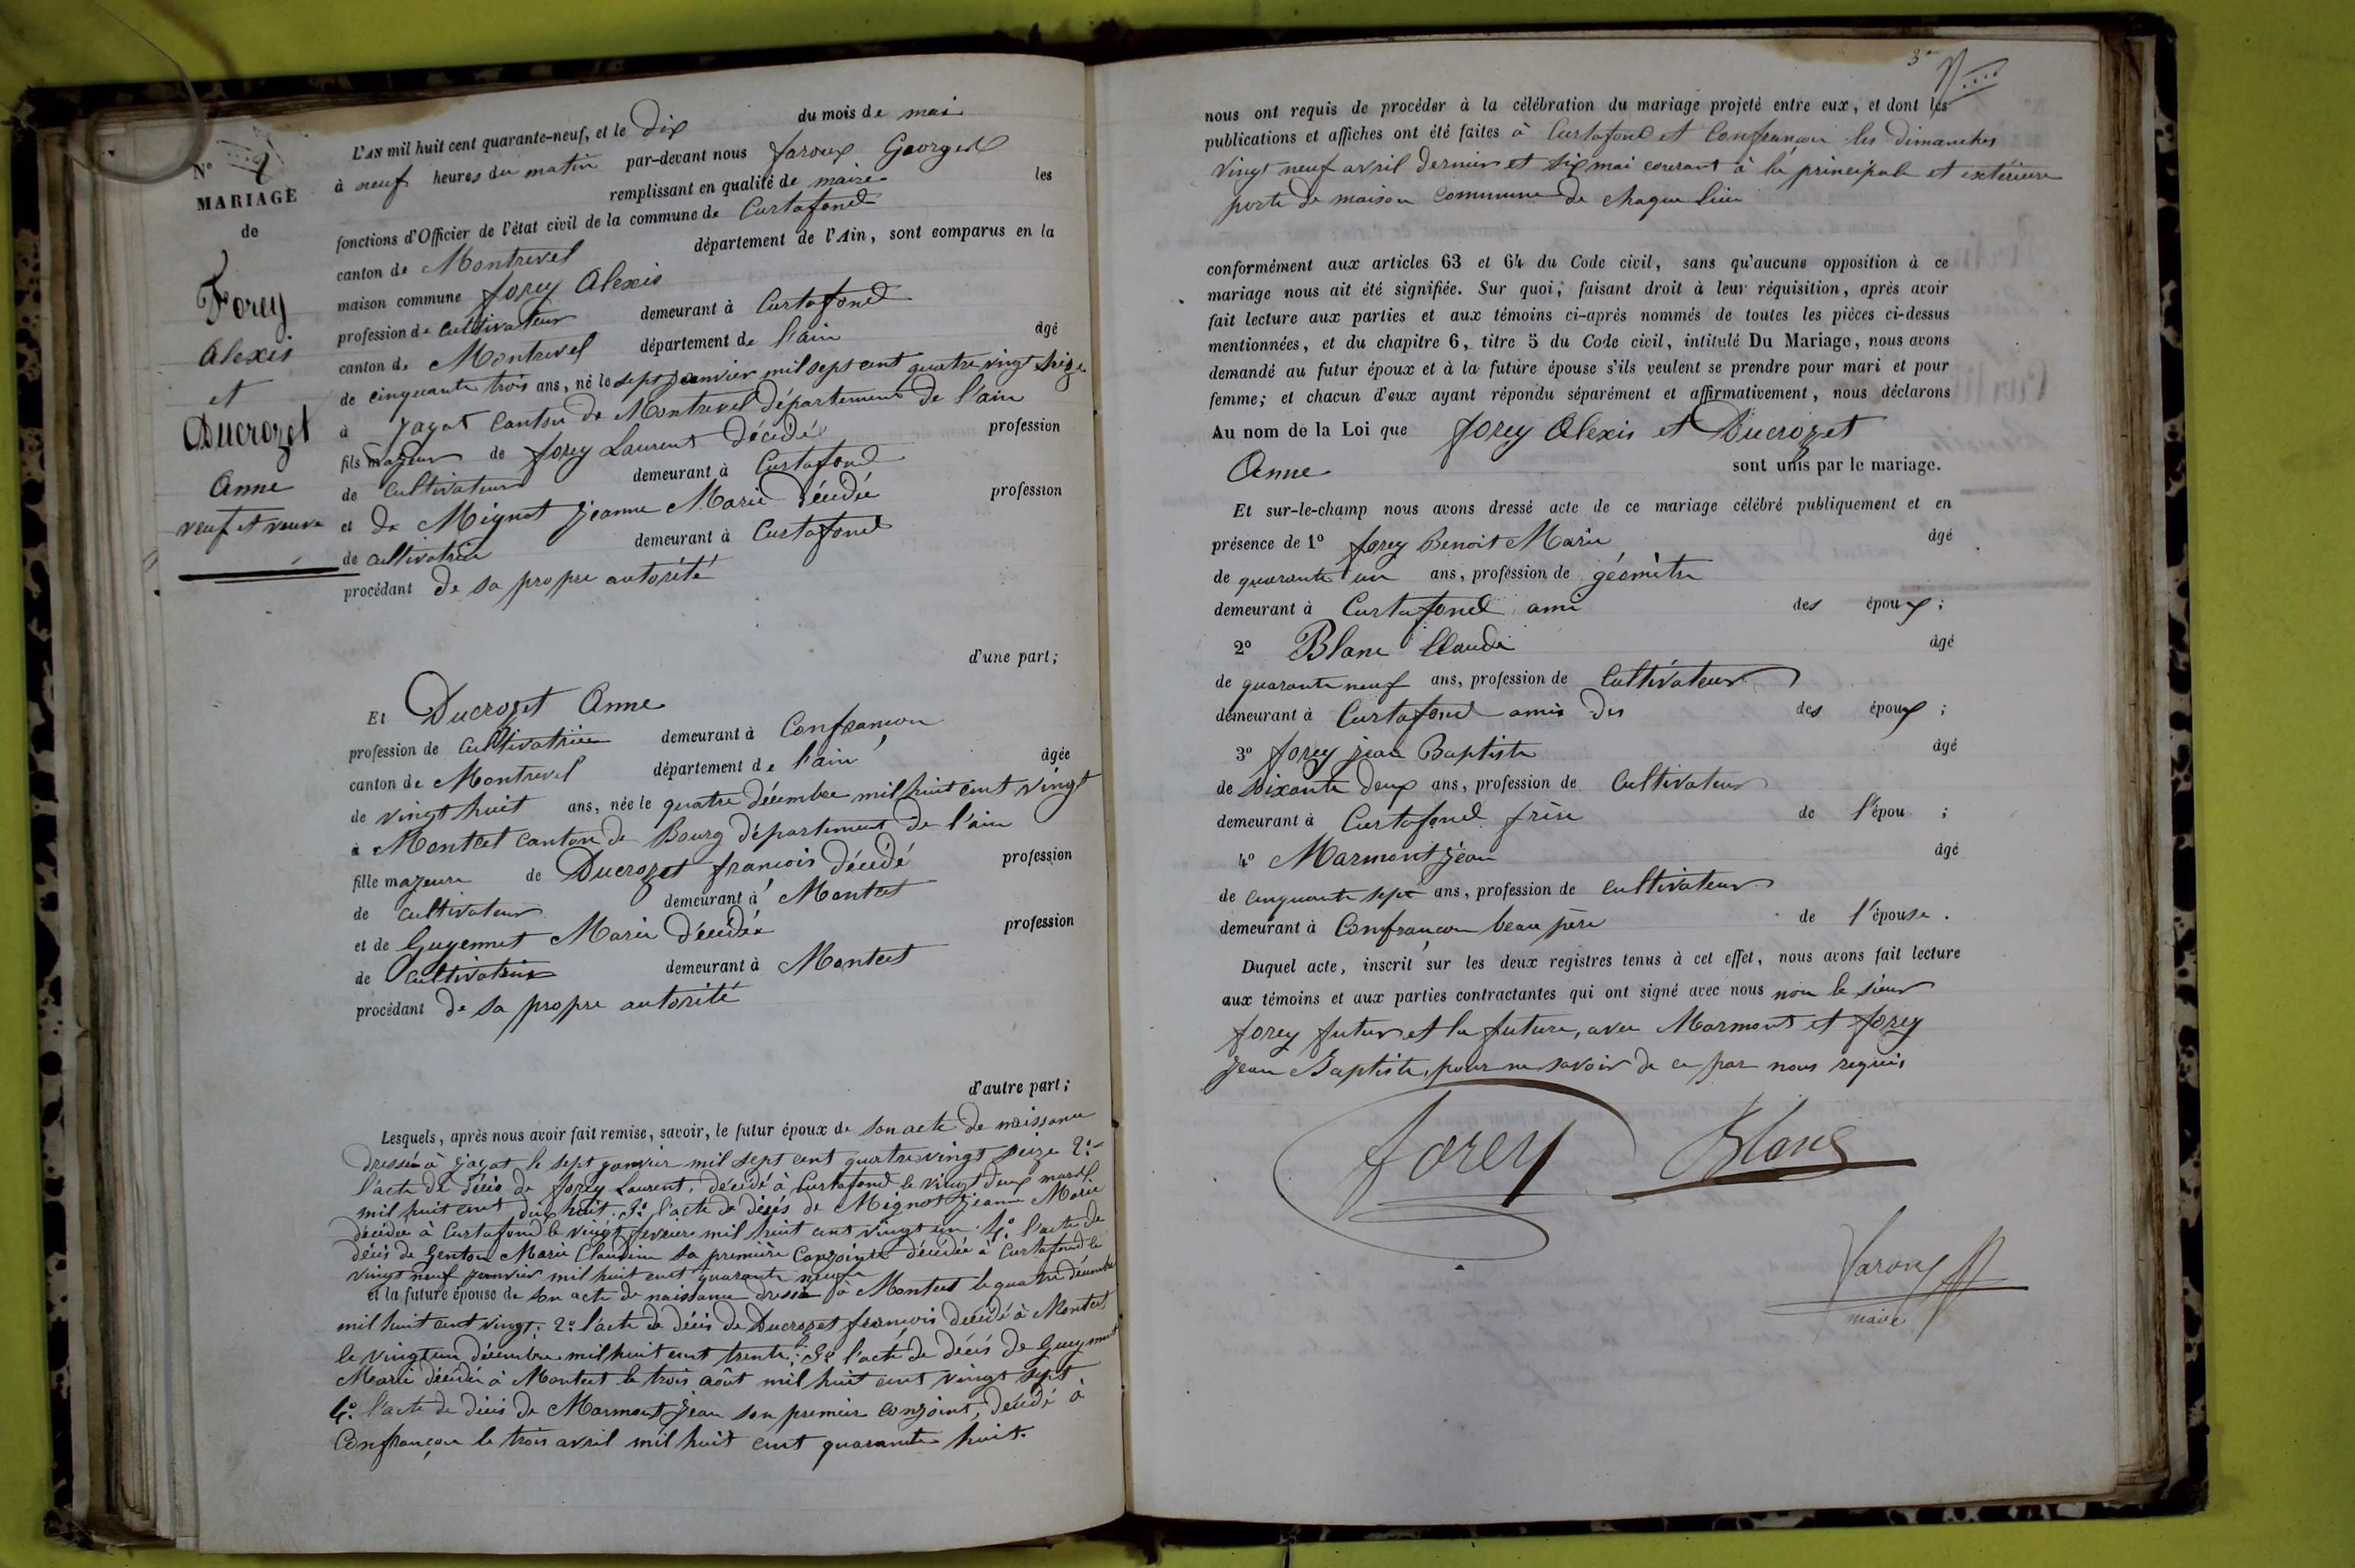 N°
MARIAGE
de
Forey
Alexis
et
Ducrozet
Anne
veuf et veuve
L'AN mil huit cent quarante-neuf, et le dix du mois de mai
à neuf heures du matin par-devant nous faroux Georges
remplissant en qualité de maire les
fonctions d'Officier de l'état civil de la commune de Curtafond
canton de Montrevel département de l'Ain, sont comparus en la
maison commune forey Alexis
profession de cultivateur demeurant à Curtafond
canton de Montrevel département de l'ain âgé
de cinquante trois ans, né le sept janvier mil sept cent quatre vingt seize
à jayat canton de Montrevel département de l'ain
fils majeur de forey Laurent décédé profession
de cultivateur demeurant à Curtafond
et de Mignot jeanne Marie décédée profession
de cultivatrice demeurant à Curtafond
procédant de sa propre autorité
d'une part;
Et Ducrozet Anne
profession de cultivatrice demeurant à Confrançon
canton de Montrevel département de l'ain âgée
de vingt huit ans, née le quatre décembre mil huit cent vingt
à Montcet canton de Bourg département de l'ain
fille majeure de Ducrozet françois décédé profession
de cultivateur demeurant à Montcet
et de Guyennet Marie décédée profession
de cultivatrice demeurant à Montcet
procédant de sa propre autorité
d'autre part;
Lesquels, après nous avoir fait remise, savoir, le futur époux de son acte de naissance
dressé à jayat le sept janvier mil sept cent quatre vingt seize 2°
l'acte de décès de forey Laurent, décédé à Curtafond le vingt deux mars
mil huit cent dix huit. 3° l'acte de décès de Mignot jeanne Marie
décédée à Curtafond le vingt fevrier mil huit cent vingt un. 4° l'acte de
décès de Genton Marie Claudine sa première conjointe décédée à Curtafond le
vingt neuf janvier mil huit cent quarante neuf
et la future épouse de son acte de naissance dressé à Montcet le quatre décembre
mil huit cent vingt. 2° l'acte de décès de Ducrozet françois décédé à Montcet
le vingt un décembre mil huit cent trente; 3° l'acte de décès de
Marie décédée à Montcet le trois août mil huit cent vingt sept
4° l'acte de décès de Marmont jean son premier conjoint, décédé à
Confrançon le trois avril mil huit cent quarante huit.
nous ont requis de procéder à la célébration du mariage projeté entre eux, et dont les
publications et affiches ont été faites à Curtafond et Confrançon les dimanches
vingt neuf avril dernier et six mai courant à la principale et extérieure
porte de maison commune de chaque lieu
conformément aux articles 63 et 64 du Code civil, sans qu'aucune opposition à ce
mariage nous ait été signifiée. Sur quoi, faisant droit à leur réquisition, après avoir
fait lecture aux parties et aux témoins ci-après nommés de toutes les pièces ci-dessus
mentionnées, et du chapitre 6, titre 5 du Code civil, intitulé Du Mariage, nous avons
demandé au futur époux et à la future épouse s'ils veulent se prendre pour mari et pour
femme; et chacun d'eux ayant répondu séparément et affirmativement, nous déclarons
Au nom de la Loi que forey Alexis et Ducrozet
Anne sont unis par le mariage.
Et sur-le-champ nous avons dressé acte de ce mariage célébré publiquement et en
présence de 1° forey Benoit Marie âgé
de quarante un ans, profession de géomètre
demeurant à Curtafond ami des époux;
2° Blanc Claude âgé
de quarante neuf ans, profession de cultivateur
demeurant à Curtafond amis des des époux;
3° forey jean Baptiste âgé
de soixante deux ans, profession de cultivateur
demeurant à Curtafond frère de l'épou ;
4° Marmont jean âgé
de cinquante sept ans, profession de cultivateur
demeurant à Confrançon beau père de l'épouse.
Duquel acte, inscrit sur les deux registres tenus à cet effet, nous avons fait lecture
aux témoins et aux parties contractantes qui ont signé avec nous non le sieur
forey futur et la future, avec Marmont et forey
jean Baptiste, pour ne savoir de ce par nous requis
forey Blanc
faroux
maire